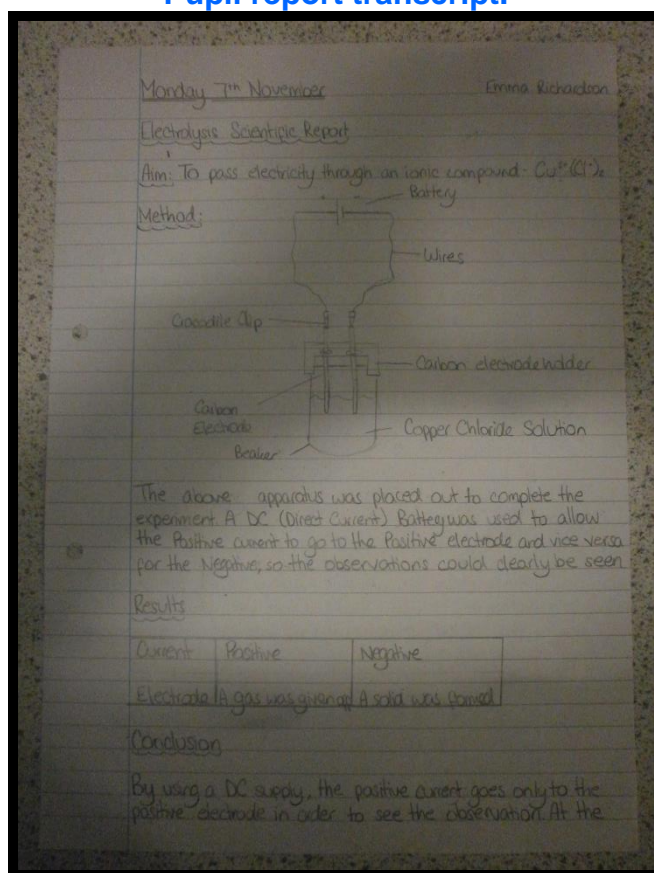 Pupil report transcript:
Monday 7th November
Emma Richardson
Electrolysis Scientific Report
Aim: To pass electricity through an ionic compound - Cu²⁺(Cl⁻)₂
Battery
Method:
Wires
Crocodile Clip
Carbon electrode holder
Carbon
Electrode
Copper Chloride Solution
Beaker
The above apparatus was placed out to complete the
experiment. A DC (Direct Current) Battery was used to allow
the Positive current to go to the Positive electrode and vice versa
for the Negative, so the observations could clearly be seen
Results
Current Positive Negative
Electrode A gas was given off A solid was formed
Conclusion
By using a DC supply, the positive current goes only to the
positive electrode in order to see the observation. At the